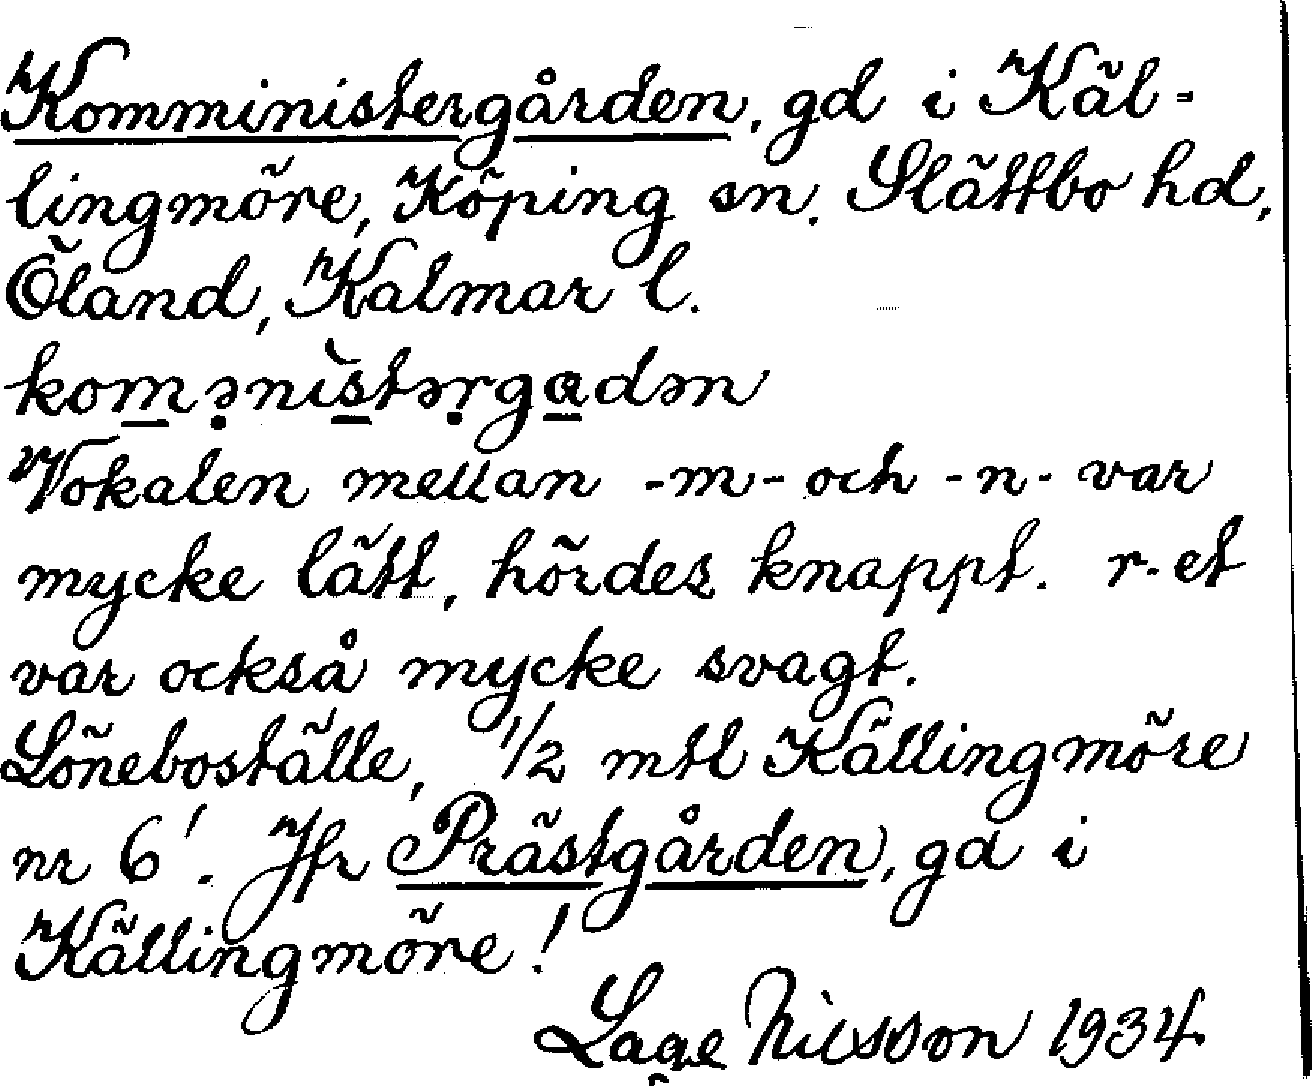 Komministergården, gd i Käl-
lingmöre, Köping sn. Slättbo hd,
Öland, Kalmar l.
komənìstərgadən
Vokalen mellan -m- och -n- var
mycke lätt, hördes knappt. r-et
var också mycke svagt.
Löneboställe, 1/2 mtl Källingmöre
nr 6¹. Jfr Prästgården, gd i
Källingmöre!
Lage Nilsson 1934